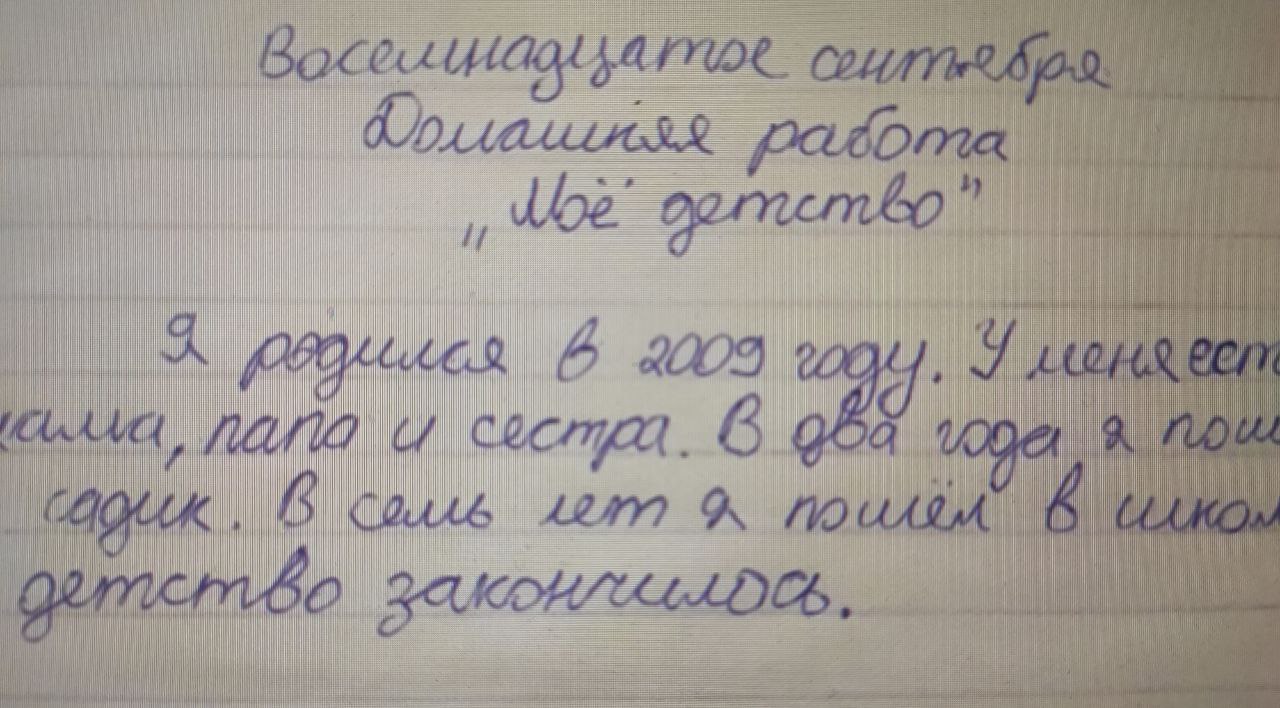 Восемнадцатое сентября
Домашняя работа
„Моё детство”
Я родился в 2009 году. У меня ест
мама, папа и сестра. В два года я пош
садик. В семь лет я пошёл в школ
детство закончилось.